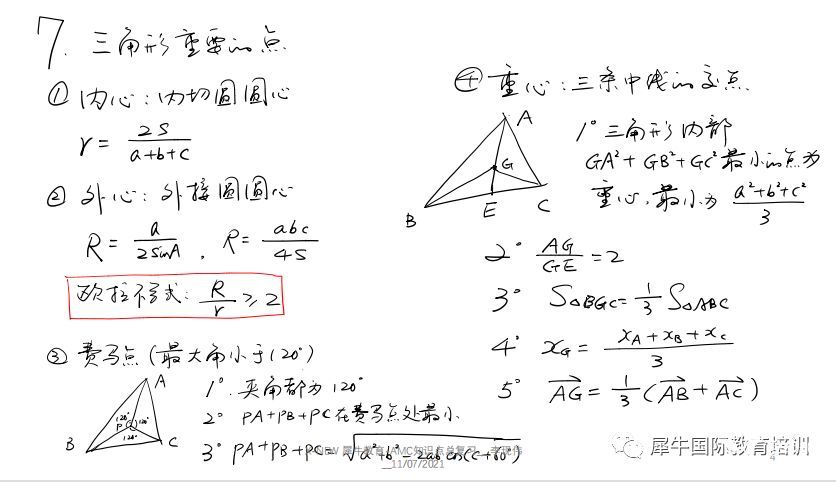 7. 三角形重要的点
① 内心：内切圆圆心
r = 2S / (a+b+c)
② 外心：外接圆圆心
R = a / 2sinA , R = abc / 4S
欧拉不等式: R/r ≥ 2
③ 费马点 (最大角小于120°)
A
B
C
P
120°
120°
120°
1°. 夹角都为120°
2° PA+PB+PC在费马点处最小.
3° PA+PB+PC = √(a²+b²-2ab cos(C+60°))
④ 重心：三条中线的交点.
A
B
C
G
E
1° 三角形内部
GA²+GB²+GC²最小的点为
重心, 最小为 (a²+b²+c²) / 3
2° AG/GE = 2
3° S△BGC = 1/3 S△ABC
4° xG = (xA+xB+xC) / 3
5° AG = 1/3 (AB + AC)
NEW 犀牛教育 AMC知识点总复习
11/07/2021
4
犀牛国际教育培训